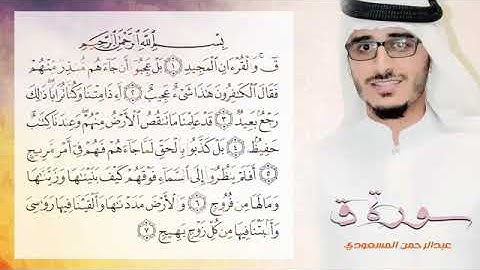 بِسْمِ ٱللَّهِ ٱلرَّحْمَٰنِ ٱلرَّحِيمِ
قٓ ۚ وَٱلْقُرْءَانِ ٱلْمَجِيدِ ١ بَلْ عَجِبُوٓا۟ أَن جَآءَهُم مُّنذِرٌ مِّنْهُمْ
فَقَالَ ٱلْكَٰفِرُونَ هَٰذَا شَىْءٌ عَجِيبٌ ٢ أَءِذَا مِتْنَا وَكُنَّا تُرَابًا ۖ ذَٰلِكَ
رَجْعٌۢ بَعِيدٌ ٣ قَدْ عَلِمْنَا مَا تَنقُصُ ٱلْأَرْضُ مِنْهُمْ ۖ وَعِندَنَا كِتَٰبٌ
حَفِيظٌۢ ٤ بَلْ كَذَّبُوا۟ بِٱلْحَقِّ لَمَّا جَآءَهُمْ فَهُمْ فِىٓ أَمْرٍ مَّرِيجٍ
٥ أَفَلَمْ يَنظُرُوٓا۟ إِلَى ٱلسَّمَآءِ فَوْقَهُمْ كَيْفَ بَنَيْنَٰهَا وَزَيَّنَّٰهَا
وَمَا لَهَا مِن فُرُوجٍ ٦ وَٱلْأَرْضَ مَدَدْنَٰهَا وَأَلْقَيْنَا فِيهَا رَوَٰسِىَ
وَأَنۢبَتْنَا فِيهَا مِن كُلِّ زَوْجٍۭ بَهِيجٍ ٧
سورة ق
عبدالرحمن المسعودي